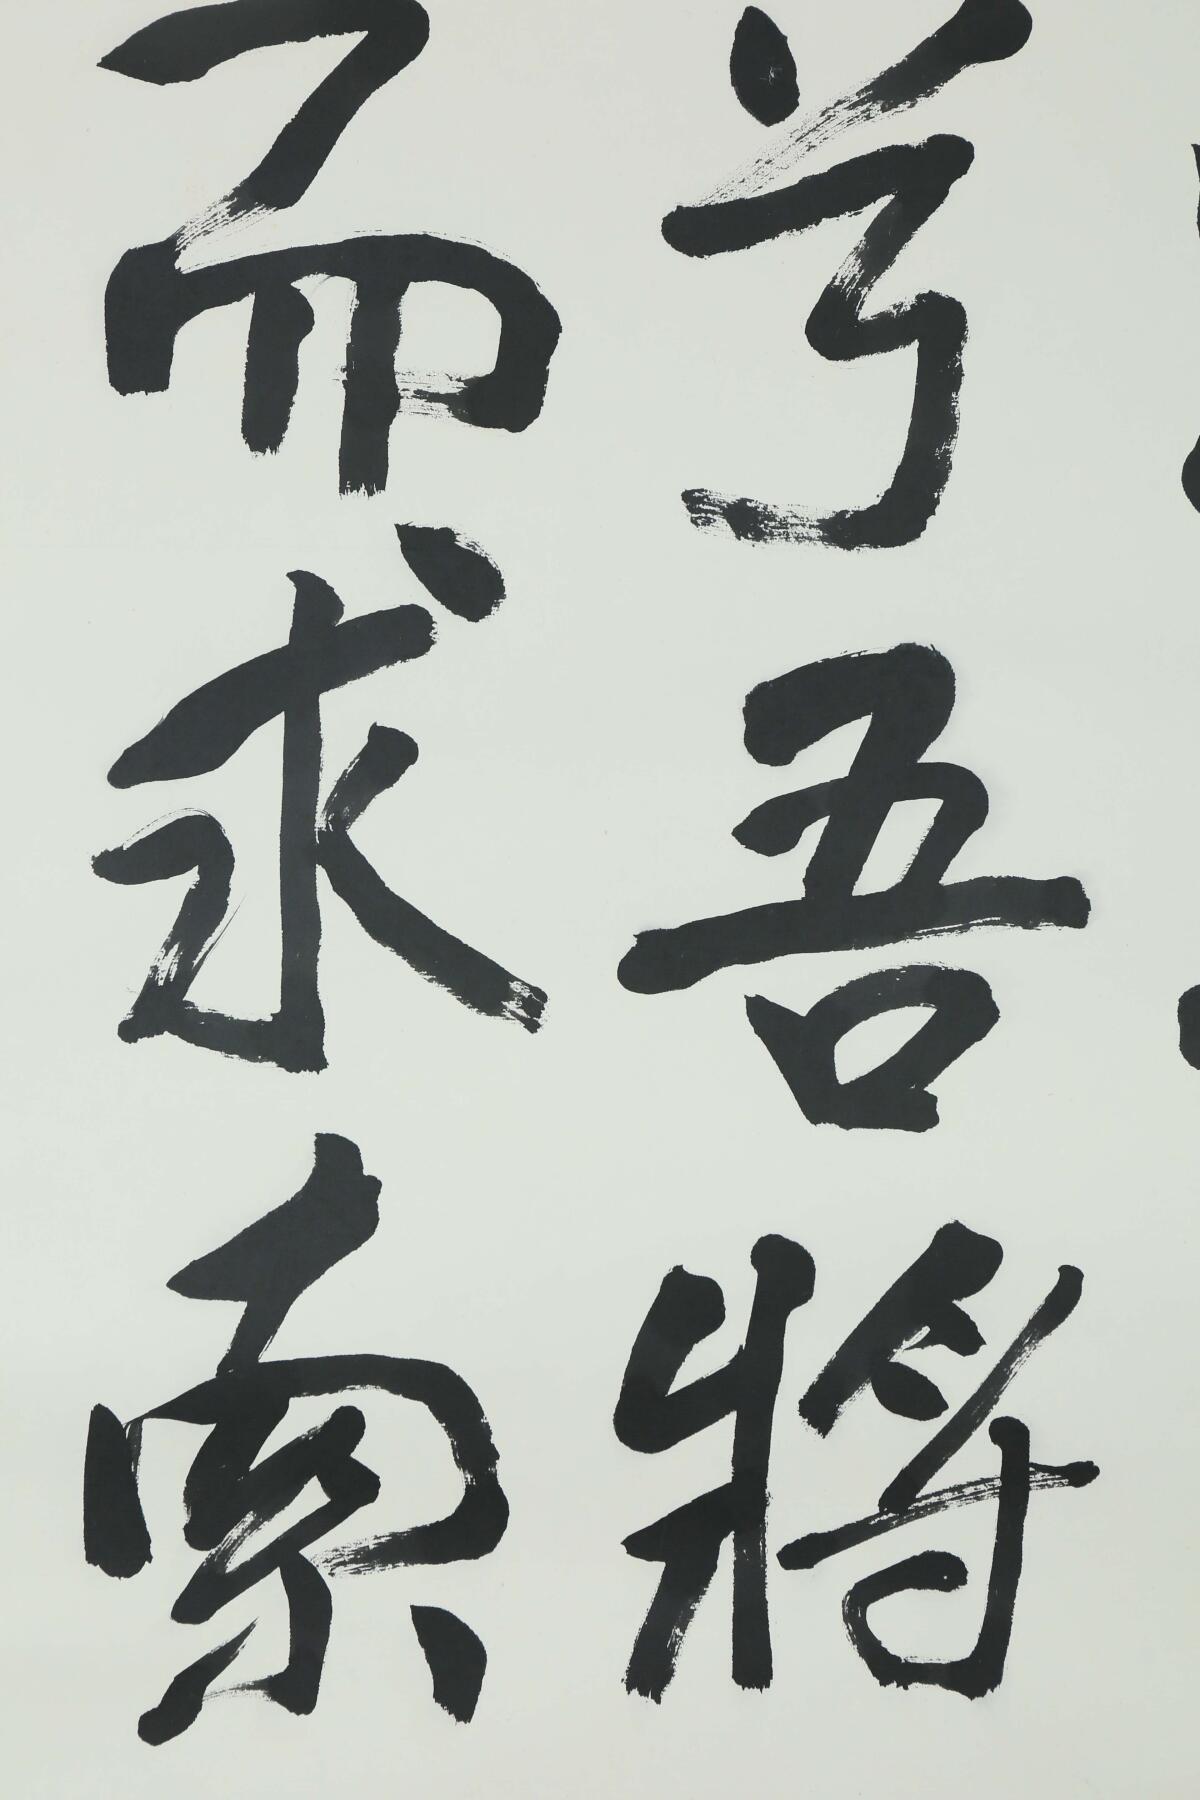 兮吾將
而求索